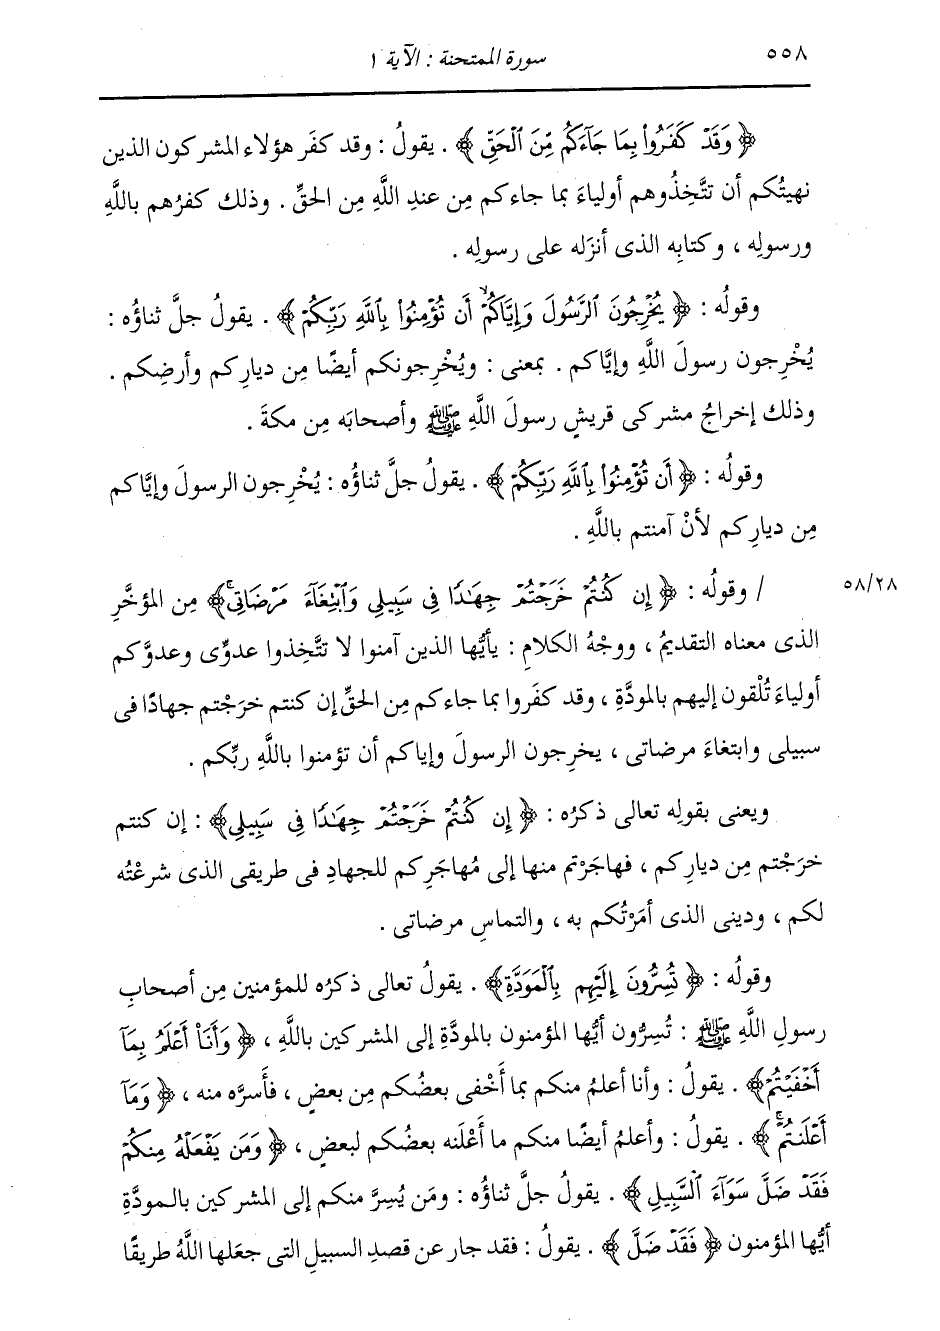 ٥٥٨
سورة الممتحنة : الآية ١
﴿ وَقَدْ كَفَرُوا۟ بِمَا جَآءَكُم مِّنَ ٱلْحَقِّ ﴾ . يقولُ : وقد كفَر هؤلاء المشركون الذين
نهيتُكم أن تتَّخِذُوهم أولياءَ بما جاءكم مِن عندِ اللَّهِ مِن الحقِّ . وذلك كفرُهم باللَّهِ
ورسولِه ، وكتابِه الذى أنزَله على رسولِه .
وقولُه : ﴿ يُخْرِجُونَ ٱلرَّسُولَ وَإِيَّاكُمْ ۙ أَن تُؤْمِنُوا۟ بِٱللَّهِ رَبِّكُمْ ﴾ . يقولُ جلَّ ثناؤُه :
يُخْرِجون رسولَ اللَّهِ وإيَّاكم . بمعنى : ويُخْرِجونكم أيضًا مِن ديارِكم وأرضِكم .
وذلك إخراجُ مشركى قريشٍ رسولَ اللَّهِ ﷺ وأصحابَه مِن مكةَ .
وقولُه : ﴿ أَن تُؤْمِنُوا۟ بِٱللَّهِ رَبِّكُمْ ﴾ . يقولُ جلَّ ثناؤُه : يُخْرِجون الرسولَ وإيَّاكم
مِن ديارِكم لأنْ آمنتم باللَّهِ .
/ وقولُه : ﴿ إِن كُنتُمْ خَرَجْتُمْ جِهَٰدًا فِى سَبِيلِى وَٱبْتِغَآءَ مَرْضَاتِى ۚ ﴾ مِن المؤخَّرِ
٥٨/٢٨
الذى معناه التقديمُ ، ووجْهُ الكلامِ : يأيُّها الذين آمنوا لا تتَّخِذوا عدوِّى وعدوَّكم
أولياءَ تُلْقون إليهم بالمودَّةِ ، وقد كفَروا بما جاءكم مِن الحقِّ إن كنتم خرَجْتم جهادًا فى
سبيلى وابتغاءَ مرضاتى ، يخرِجون الرسولَ وإياكم أن تؤمنوا باللَّهِ ربِّكم .
ويعنى بقولِه تعالى ذكرُه : ﴿ إِن كُنتُمْ خَرَجْتُمْ جِهَٰدًا فِى سَبِيلِى ﴾ : إن كنتم
خرَجْتم مِن ديارِكم ، فهاجَرْتم منها إلى مُهاجَرِكم للجهادِ فى طريقى الذى شرعْتُه
لكم ، ودينى الذى أمَرْتُكم به ، والتماسِ مرضاتى .
وقولُه : ﴿ تُسِرُّونَ إِلَيْهِم بِٱلْمَوَدَّةِ ﴾ . يقولُ تعالى ذكرُه للمؤمنين مِن أصحابِ
رسولِ اللَّهِ ﷺ : تُسِرُّون أيُّها المؤمنون بالمودَّةِ إلى المشركين باللَّهِ ، ﴿ وَأَنَا۠ أَعْلَمُ بِمَآ
أَخْفَيْتُمْ ﴾ . يقولُ : وأنا أعلمُ منكم بما أَخْفى بعضُكم مِن بعضٍ ، فأَسرَّه منه ، ﴿ وَمَآ
أَعْلَنتُمْ ۚ ﴾ . يقولُ : وأعلمُ أيضًا منكم ما أَعْلَنه بعضُكم لبعضٍ ، ﴿ وَمَن يَفْعَلْهُ مِنكُمْ
فَقَدْ ضَلَّ سَوَآءَ ٱلسَّبِيلِ ﴾ . يقولُ جلَّ ثناؤُه : ومَن يُسِرَّ منكم إلى المشركين بالمودَّةِ
أيُّها المؤمنون ﴿ فَقَدْ ضَلَّ ﴾ . يقولُ : فقد جار عن قصدِ السبيلِ التى جعَلها اللَّهُ طريقًا